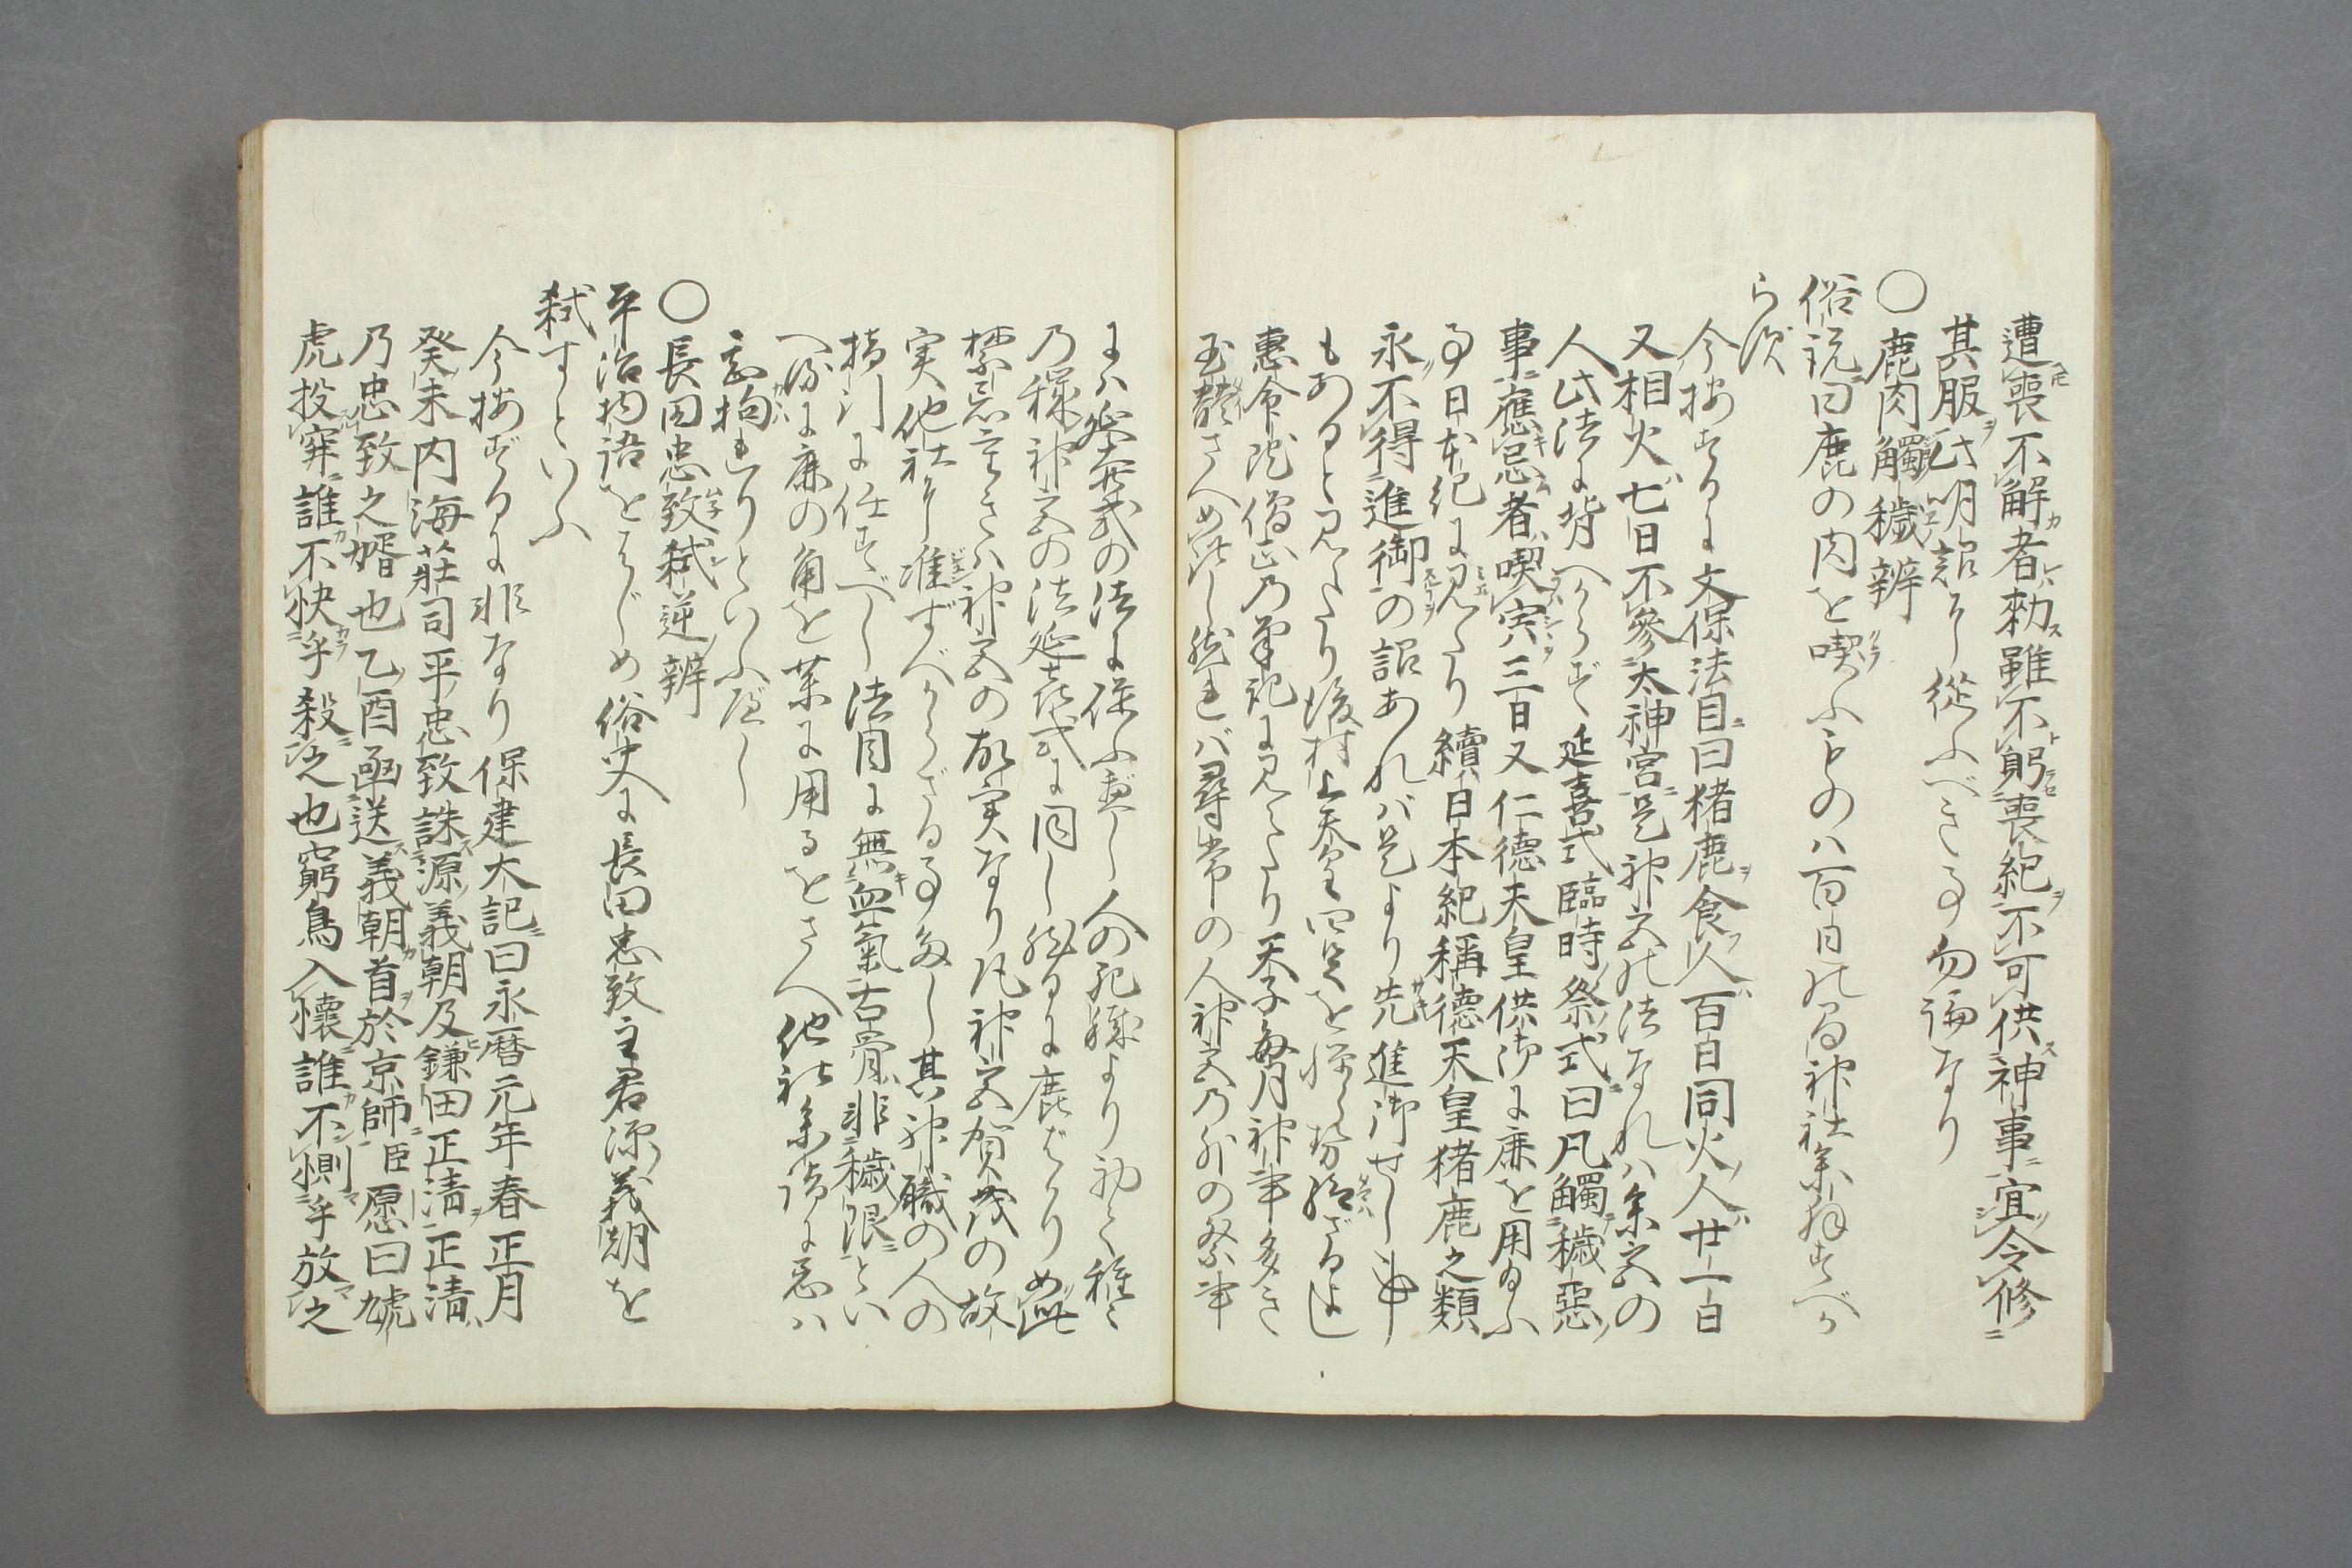 遭喪不解者勅雖不躬喪紀不可供神事宜令修
其服此明詔に從ふべき事勿論なり
○鹿肉觸穢辨
俗説曰鹿の肉を喫ふものハ百日の間神社参拝すべか
らず
今按ずるに文保法目曰猪鹿食人百日同火人廿一日
又相火七日不參太神宮是神宮の法なれハ参宮の
人此法に背べからず延喜式臨時祭式曰凡觸穢惡
事應忌者喫宍三日又仁徳天皇供御に鹿を用給ふ
事日本紀に見えたり續日本紀稱德天皇猪鹿之類
永不得進御の詔あれバ是より先進御せし事
もあると見えたり後村上天皇四足を憚らせ給ざるよし
惠命院僧正乃筆記に見えたり天子毎月神事多き
玉體さへ如此し然れバ尋常の人神宮乃外の祭事
にハ延喜式の法に依ふべし人の死穢より初て種々
乃穢神宮の法延喜式に同し然るに鹿ばかり如此
禁忌重きハ神宮の故実なり凡神宮賀茂の故
実他社に准ずべからざる事多し其神職の人の
指引に任すべし法目に無血氣古骨非穢限とい
へ際に鹿の角を葉に用るをさへ他社参詣に忌ハ
忌拘れりといふべし
○長田忠致弑逆辨
平治物語をはじめ俗史に長田忠致主君源義朝を
弑すといふ
今按ずるに非なり保建大記曰永暦元年春正月
癸未内海莊司平忠致誅源義朝及鎌田正淸正淸
乃忠致之婿也乙酉函送義朝首於京師臣愿曰虓
虎投穽誰不快乎殺之也窮鳥入懷誰不惻乎放之